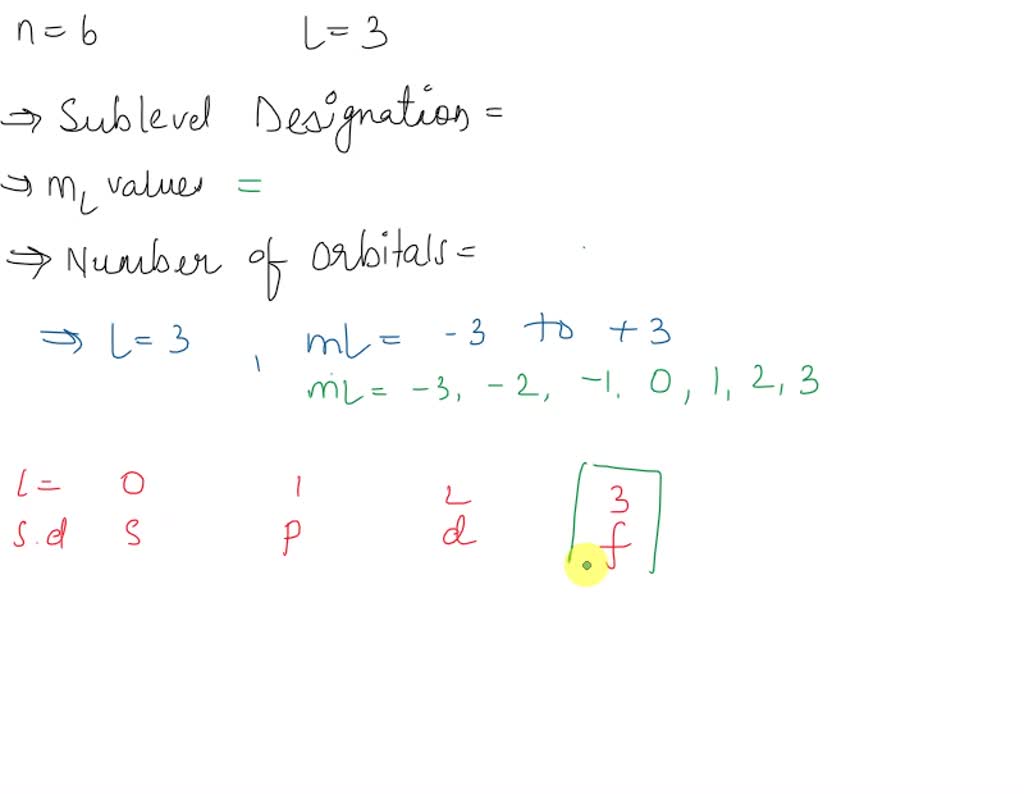 n = 6 l = 3
⇒ Sublevel Designation =
→ mL values =
⇒ Number of orbitals =
⇒ l = 3 , mL = -3 to +3
mL = -3, -2, -1, 0, 1, 2, 3
l = 0 1 2 3
s.d s p d f